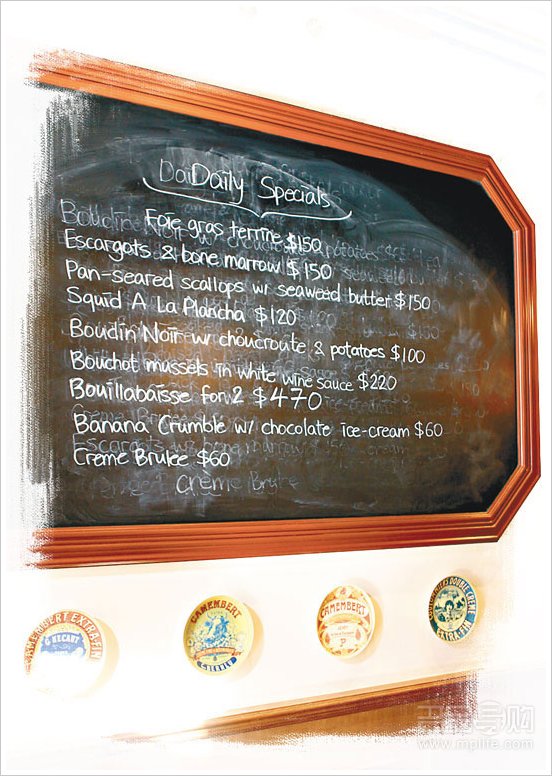 Daily Specials
Foie gras terrine $150
Escargots & bone marrow $150
Pan-seared scallops w/ seaweed butter $150
Squid A La Plancha $120
Boudin Noir w/ choucroute & potatoes $100
Bouchot mussels in white wine sauce $220
Bouillabaisse for 2 $470
Banana Crumble w/ chocolate ice-cream $60
Creme Brulee $60
Creme Brule
CAMEMBERT EXTRA-FIN
CAMEMBERT
CAMEMBERT
DOUBLE CREME
EXTRA-FIN
导购
www.mplife.com